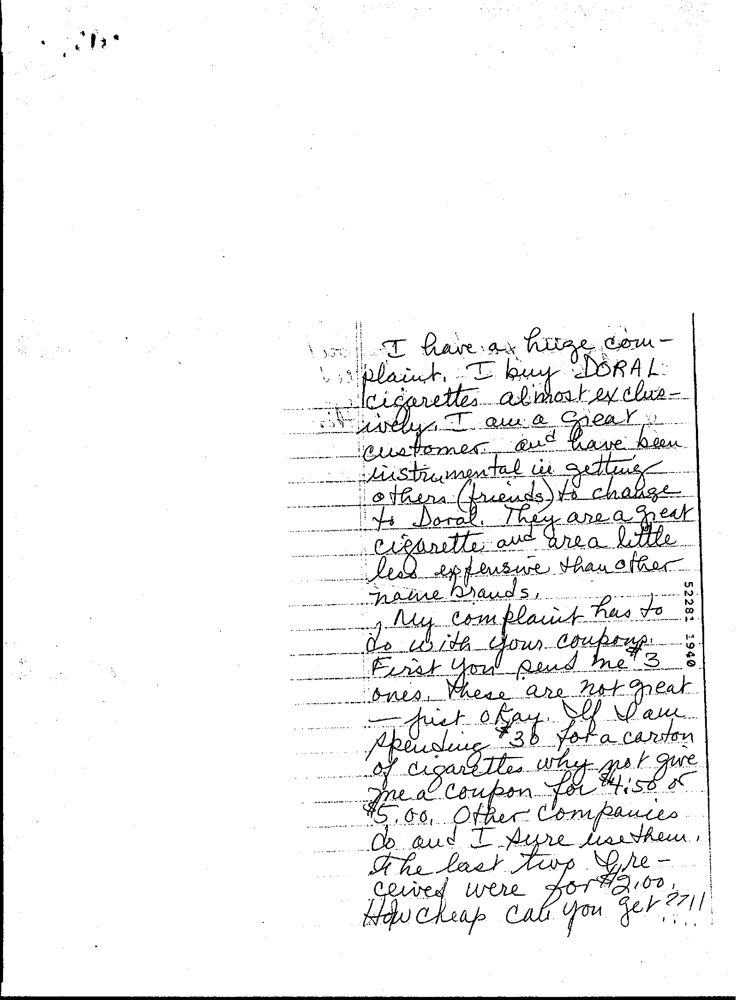 I have a huge com-
plaint. I buy DORAL
cigarettes almost exclus-
ively. I am a great
customer and have been
instrumental in getting
others (friends) to change
to Doral. They are a great
cigarette and are a little
less expensive than other
name brands.
My complaint has to
do with your coupons.
First you send me $3
ones. These are not great
— just okay. If I am
spending $30 for a carton
of cigarettes why not give
me a coupon for $4.50 or
$5.00. Other companies
do and I sure use them.
The last two I re-
ceived were for $2.00.
How cheap can you get ??!!
52281 1940